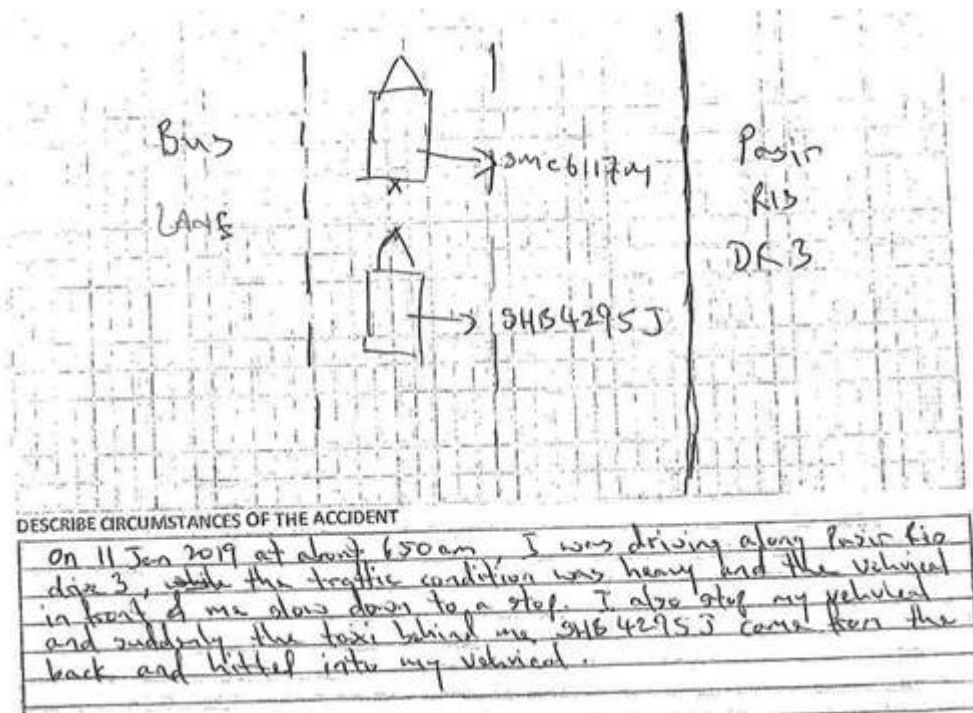 Bus
LANE
SMC6117M
Pasir
RIS
DR 3
SHB4295J
DESCRIBE CIRCUMSTANCES OF THE ACCIDENT
On 11 Jan 2019 at about 650am, I was driving along Pasir Ris
drive 3, while the traffic condition was heavy and the vehical
in front of me slow down to a stop. I also stop my
and suddenly the taxi behind me SHB4295J came from the
back and hitted into my vehical.